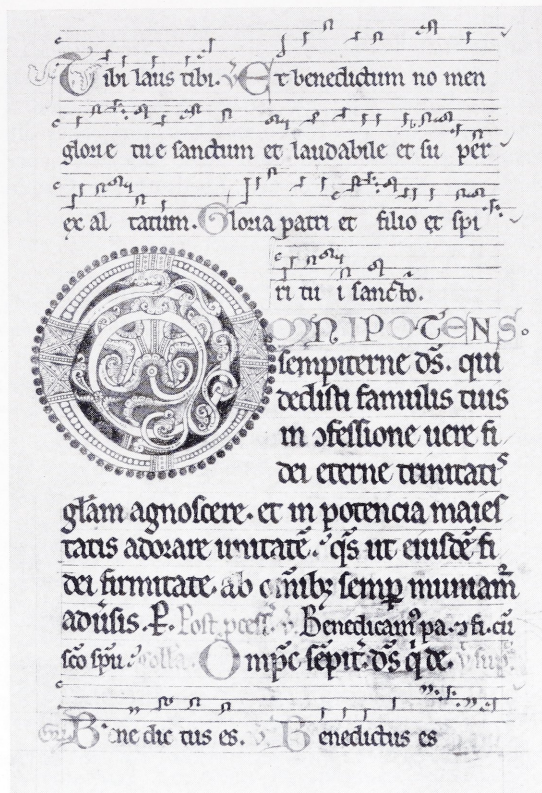 Tibi laus tibi. V Et benedictum no men
glorie tue sanctum et laudabile et su per
ex al tatum. Gloria patri et filio et spi
ri tu i sancto.
OMNIPOTENS
sempiterne ds. qui
dedisti famulis tuis
in ɔfessione uere fi
dei eterne trinitatis
glam agnoscere. et in potencia maies
tatis adorare unitatē. qs ut eiusdē fi
dei firmitate. ab omibꝫ semp muniam̄
aduisis. P. Post pcess. V. Benedicam pa. ɔ fi. cū
sco spu. colla. Ompc sepit. ds. q de.
Benedictus es. V Benedictus es